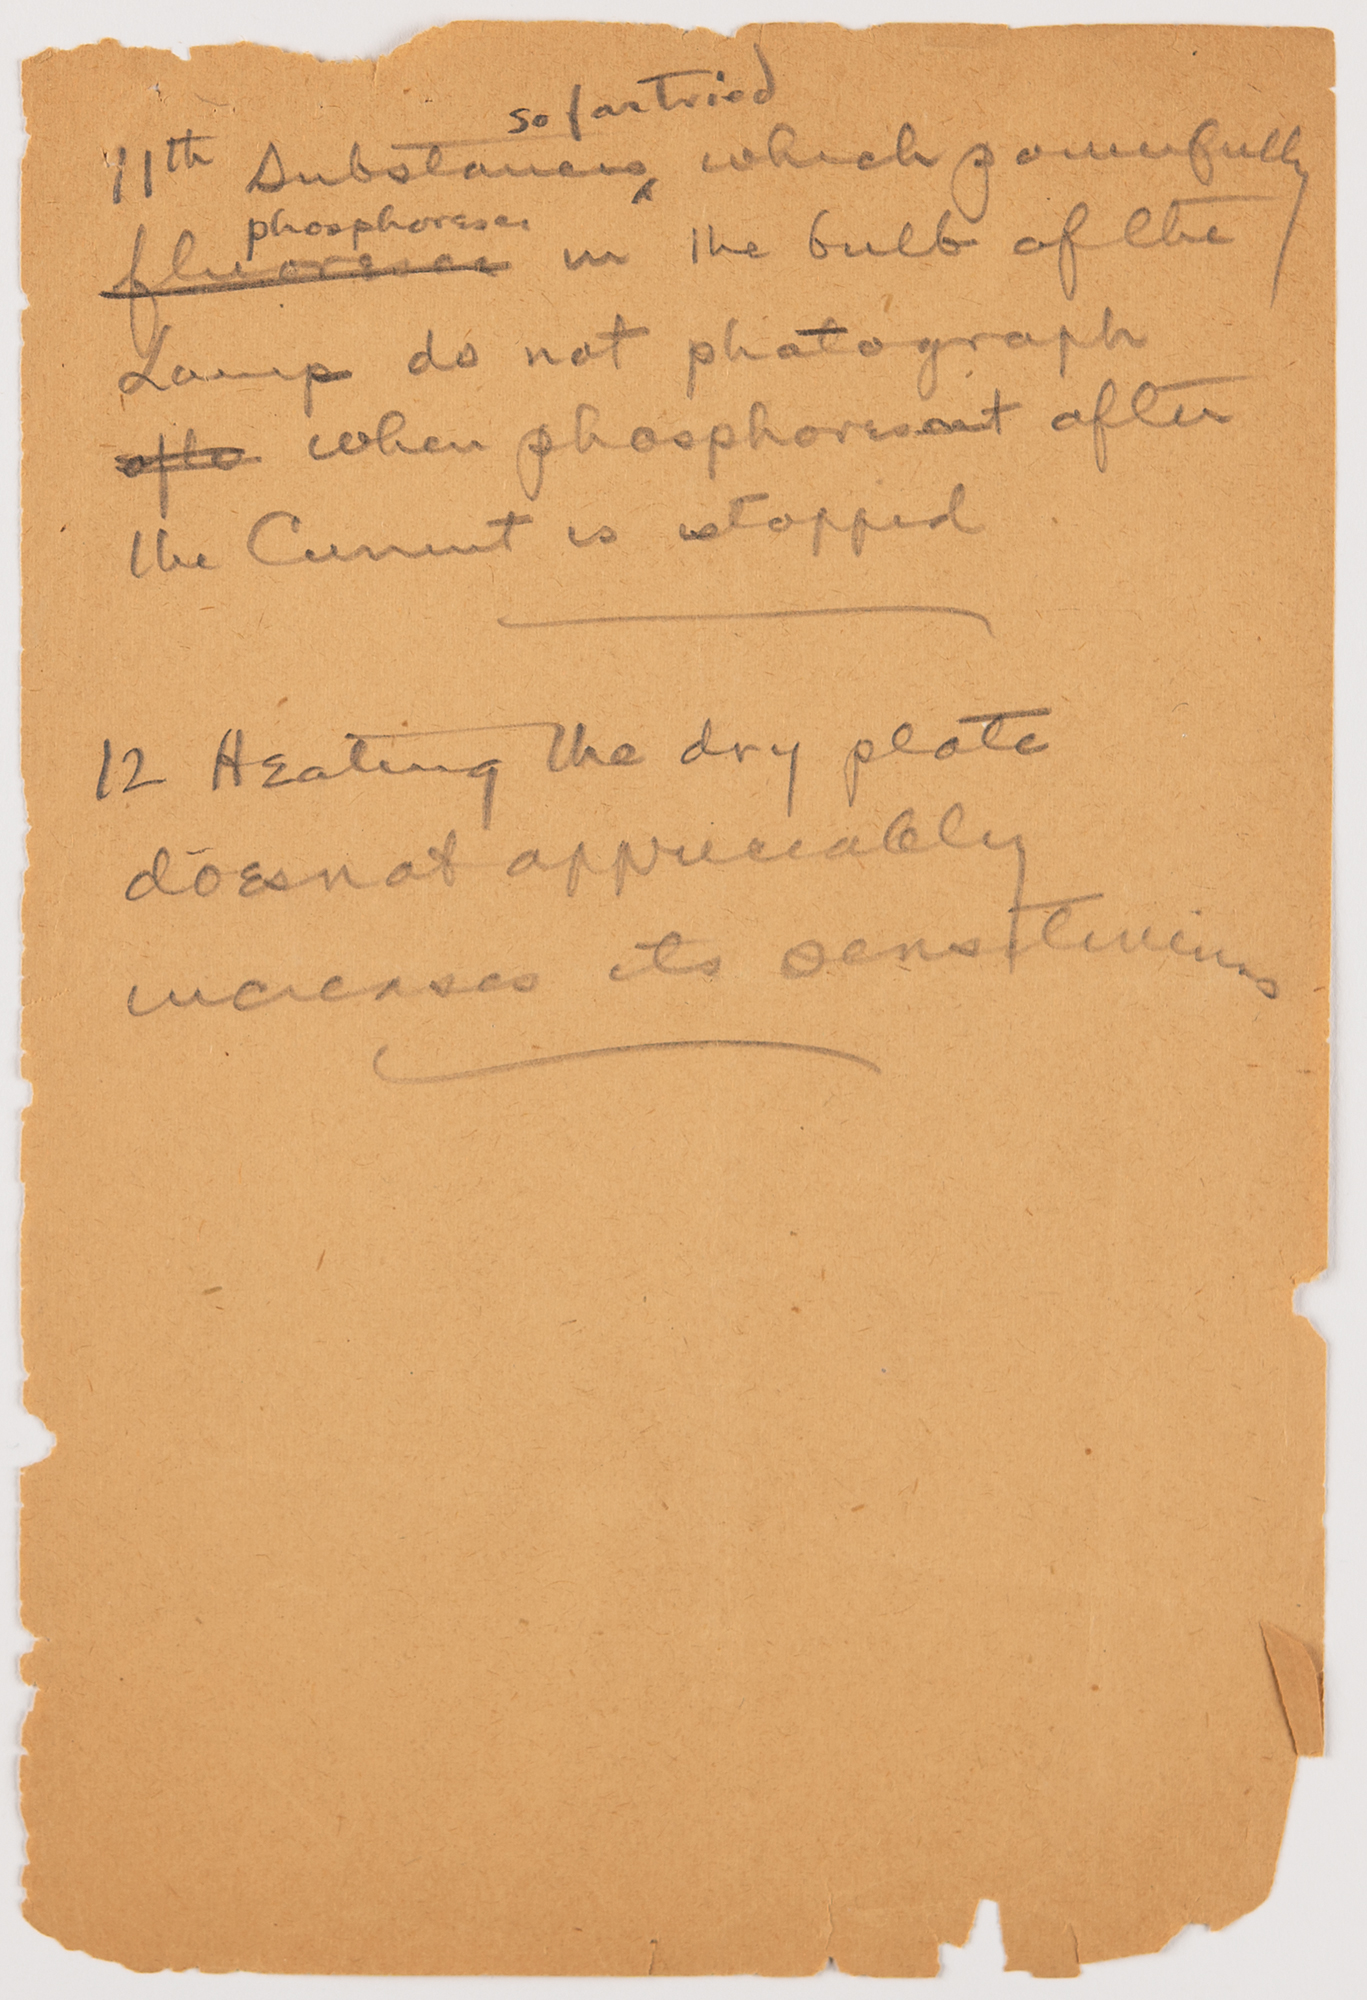 so far tried
11th Substances which powerfully
phosphoresce
fluoresce in the bulb of the
Lamp do not photograph
afte when phosphorescent after
the Current is stopped
12 Heating the dry plate
does not appreciably
increases its sensitiveness